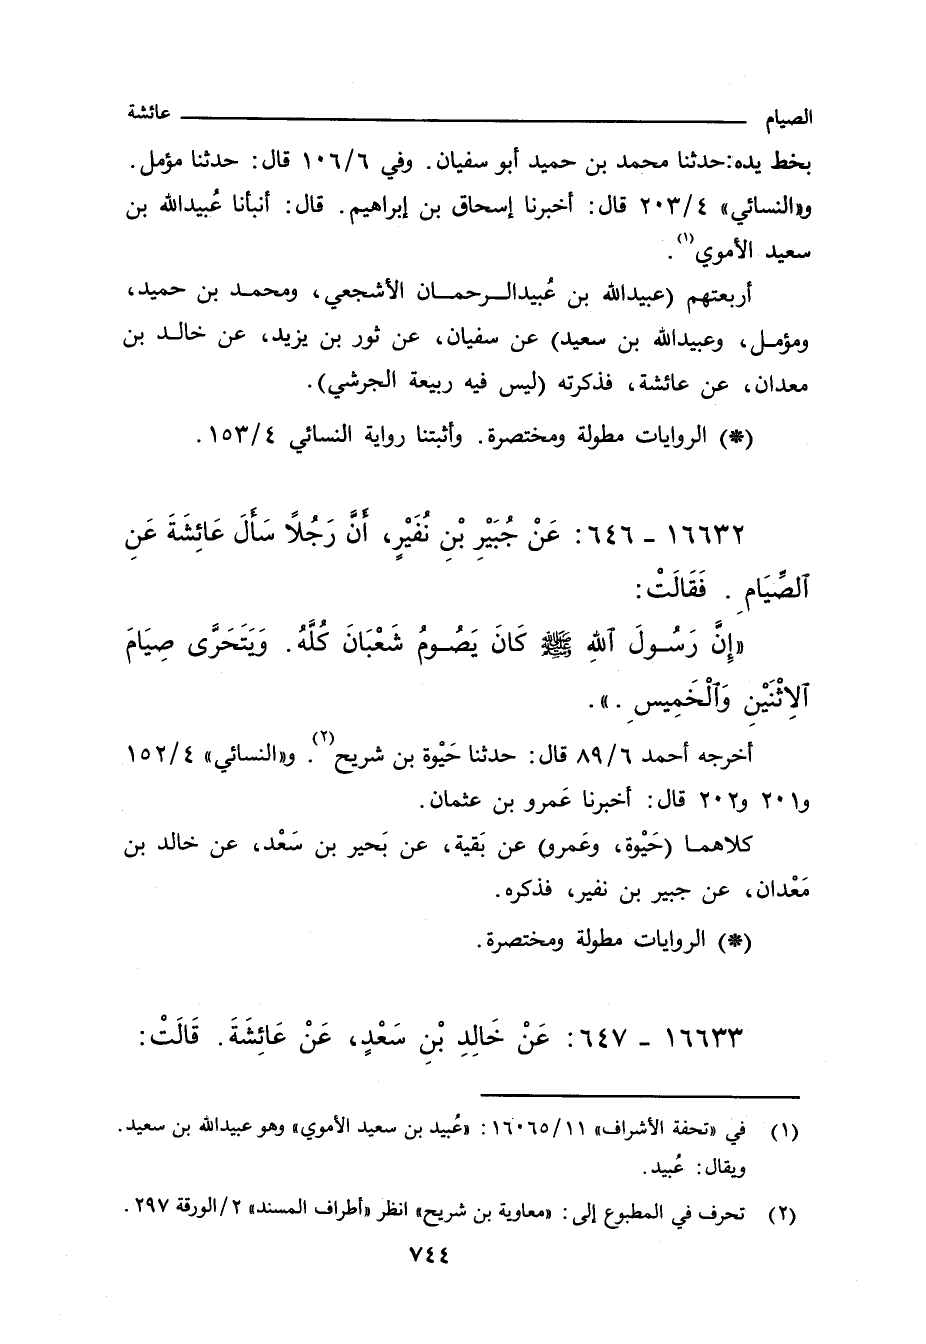 الصيام عائشة
بخط يده:حدثنا محمد بن حميد أبو سفيان. وفي ١٠٦/٦ قال: حدثنا مؤمل.
و«النسائي» ٢٠٣/٤ قال: أخبرنا إسحاق بن إبراهيم. قال: أنبأنا عُبيدالله بن
سعيد الأموي(١).
أربعتهم (عبيدالله بن عُبيدالرحمان الأشجعي، ومحمد بن حميد،
ومؤمل، وعبيدالله بن سعيد) عن سفيان، عن ثور بن يزيد، عن خالد بن
معدان، عن عائشة، فذكرته (ليس فيه ربيعة الجرشي).
(*) الروايات مطولة ومختصرة. وأثبتنا رواية النسائي ١٥٣/٤.
١٦٦٣٢ ـ ٦٤٦: عَنْ جُبَيْرِ بْنِ نُفَيْرٍ، أَنَّ رَجُلاً سَأَلَ عَائِشَةَ عَنِ
ٱلصِّيَامِ . فَقَالَتْ:
«إِنَّ رَسُولَ ٱللهِ ﷺ كَانَ يَصُومُ شَعْبَانَ كُلَّهُ. وَيَتَحَرَّى صِيَامَ
ٱلِاثْنَيْنِ وَٱلْخَمِيسِ .».
أخرجه أحمد ٨٩/٦ قال: حدثنا حَيْوة بن شريح(٢). و«النسائي» ١٥٢/٤
و٢٠١ و٢٠٢ قال: أخبرنا عَمرو بن عثمان.
كلاهما (حَيْوة، وعَمرو) عن بَقية، عن بَحير بن سَعْد، عن خالد بن
مَعْدان، عن جبير بن نفير، فذكره.
(*) الروايات مطولة ومختصرة.
١٦٦٣٣ ـ ٦٤٧: عَنْ خَالِدِ بْنِ سَعْدٍ، عَنْ عَائِشَةَ. قَالَتْ:
(١) في «تحفة الأشراف» ١٦٠٦٥/١١: «عُبيد بن سعيد الأموي» وهو عبيدالله بن سعيد.
ويقال: عُبيد.
(٢) تحرف في المطبوع إلى: «معاوية بن شريح» انظر «أطراف المسند» ٢/الورقة ٢٩٧.
٧٤٤